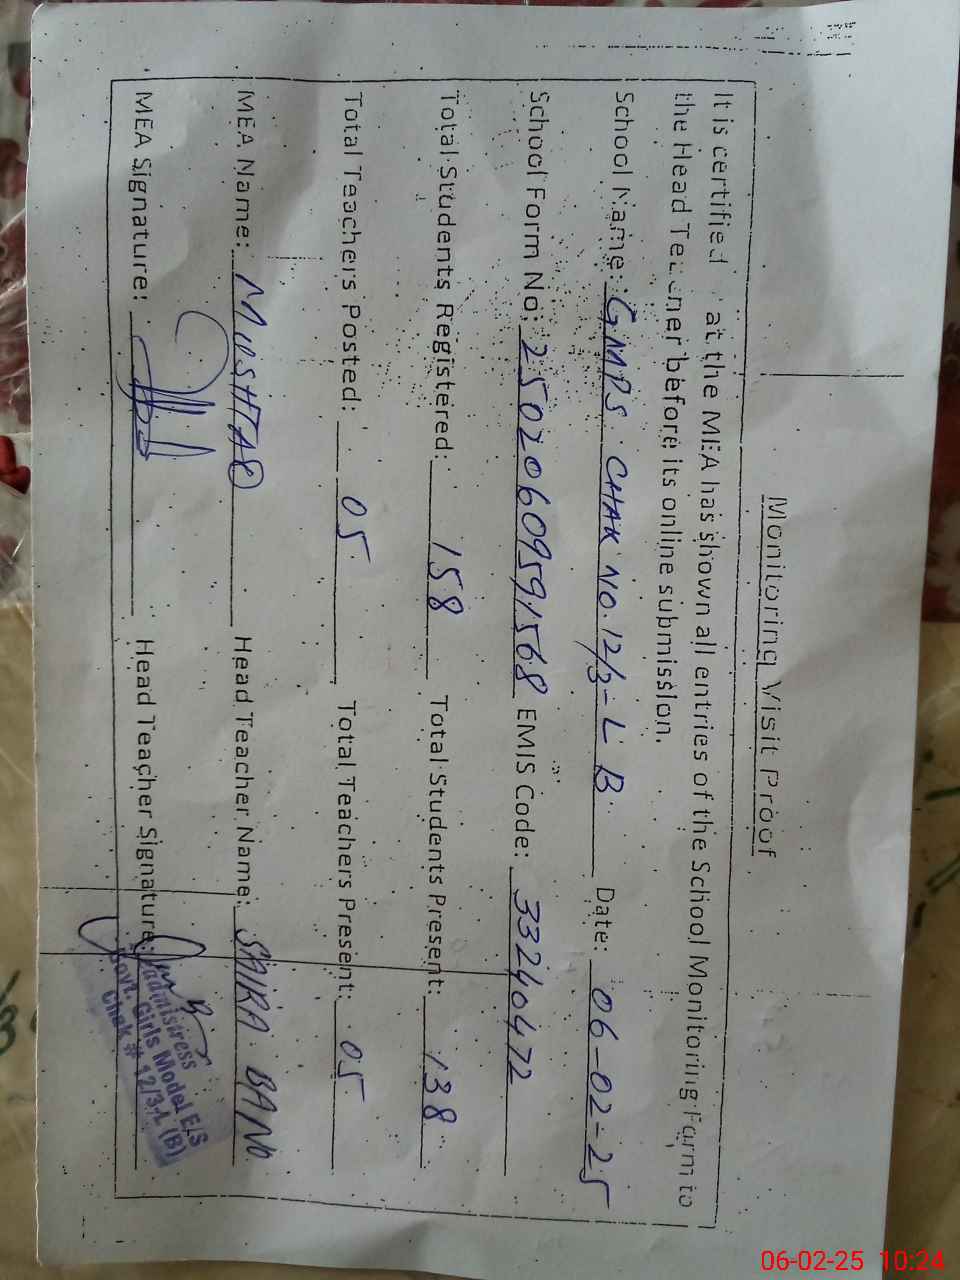 Monitoring Visit Proof
It is certified at the MEA has shown all entries of the School Monitoring Farm to
the Head Teacher before its online submission.
School Name: GMPS CHAK NO. 12/3-L B Date: 06-02-25
School Form No: 25020609591568 EMIS Code: 33240472
Total Students Registered: 158 Total Students Present: 138
Total Teachers Posted: 05 Total Teachers Present: 05
MEA Name: MUSHTAQ Head Teacher Name: SAIRA BANO
MEA Signature: Head Teacher Signature:
admistress
Govt. Girls Model E/S
Chak # 12/3-L (B)
06-02-25 10:24